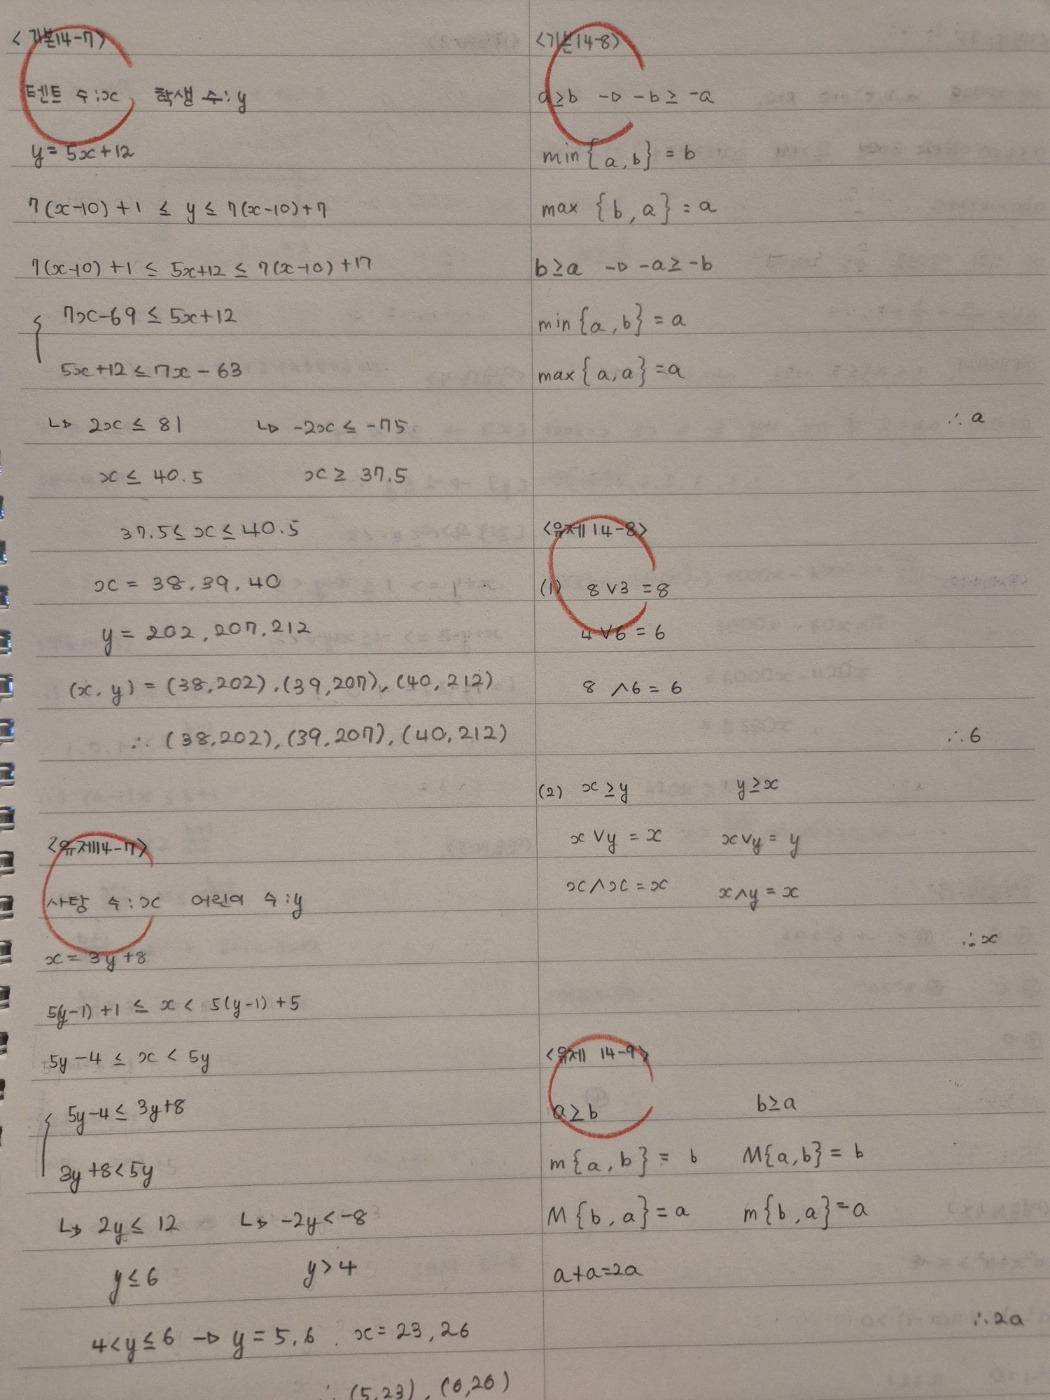 <기본14-7>
텐트 수:x, 학생 수:y
y=5x+12
7(x-10)+1 ≤ y ≤ 7(x-10)+7
7(x-10)+1 ≤ 5x+12 ≤ 7(x-10)+17
7x-69 ≤ 5x+12
5x+12 ≤ 7x-63
↳ 2x ≤ 81 ↳ -2x ≤ -75
x ≤ 40.5 x ≥ 37.5
37.5 ≤ x ≤ 40.5
x = 38, 39, 40
y = 202, 207, 212
(x, y) = (38,202), (39,207), (40,212)
∴ (38,202), (39,207), (40,212)
<유제14-7>
사탕 수:x 어린이 수:y
x=3y+8
5(y-1)+1 ≤ x < 5(y-1)+5
5y-4 ≤ x < 5y
5y-4 ≤ 3y+8
3y+8<5y
↳ 2y ≤ 12 ↳ -2y<-8
y ≤ 6 y>4
4<y≤6 → y=5,6 x=23,26
∴ (5,23), (6,26)
<기본14-8>
a≥b → -b≥-a
min{a,b}=b
max{b,a}=a
b≥a → -a≥-b
min{a,b}=a
max{a,a}=a
∴a
<유제14-8>
(1) 8∨3=8
4∨6=6
8∧6=6
∴6
(2) x≥y y≥x
x∨y=x x∨y=y
x∧x=x x∧y=x
∴x
<유제 14-9>
a≥b b≥a
m{a,b}=b M{a,b}=b
M{b,a}=a m{b,a}=a
a+a=2a
∴2a